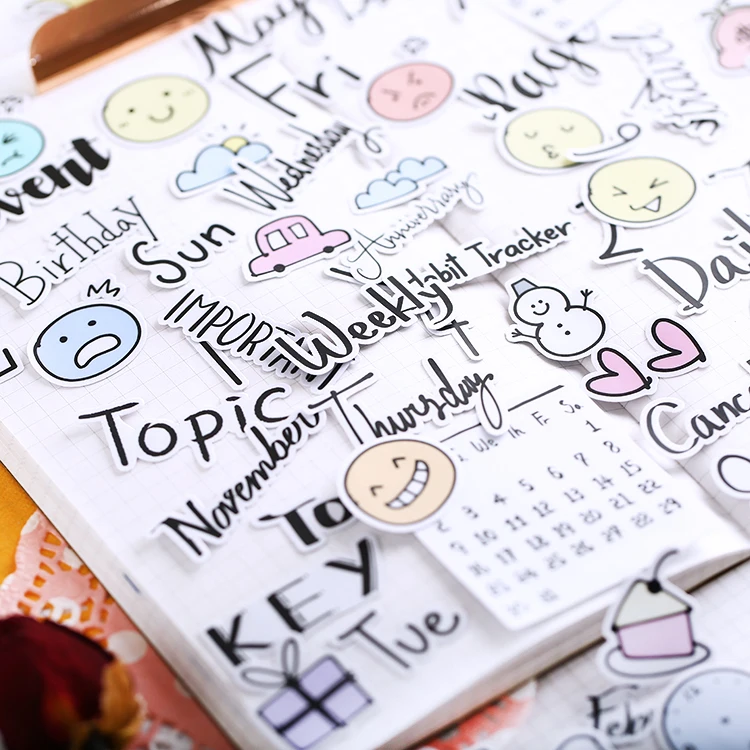 May
Fri
Page
vent
Wednesday
Birthday
Sun
Anniversary
Habit Tracker
Weekly
IMPORTANT
Topic
Thursday
November
To
KEY
Tue
We Th Fr Sa
1
2 3 4 5 6 7 8
9 10 11 12 13 14 15
16 17 18 19 20 21 22
23 24 25 26 27 28 29
Dail
Cance
Feb